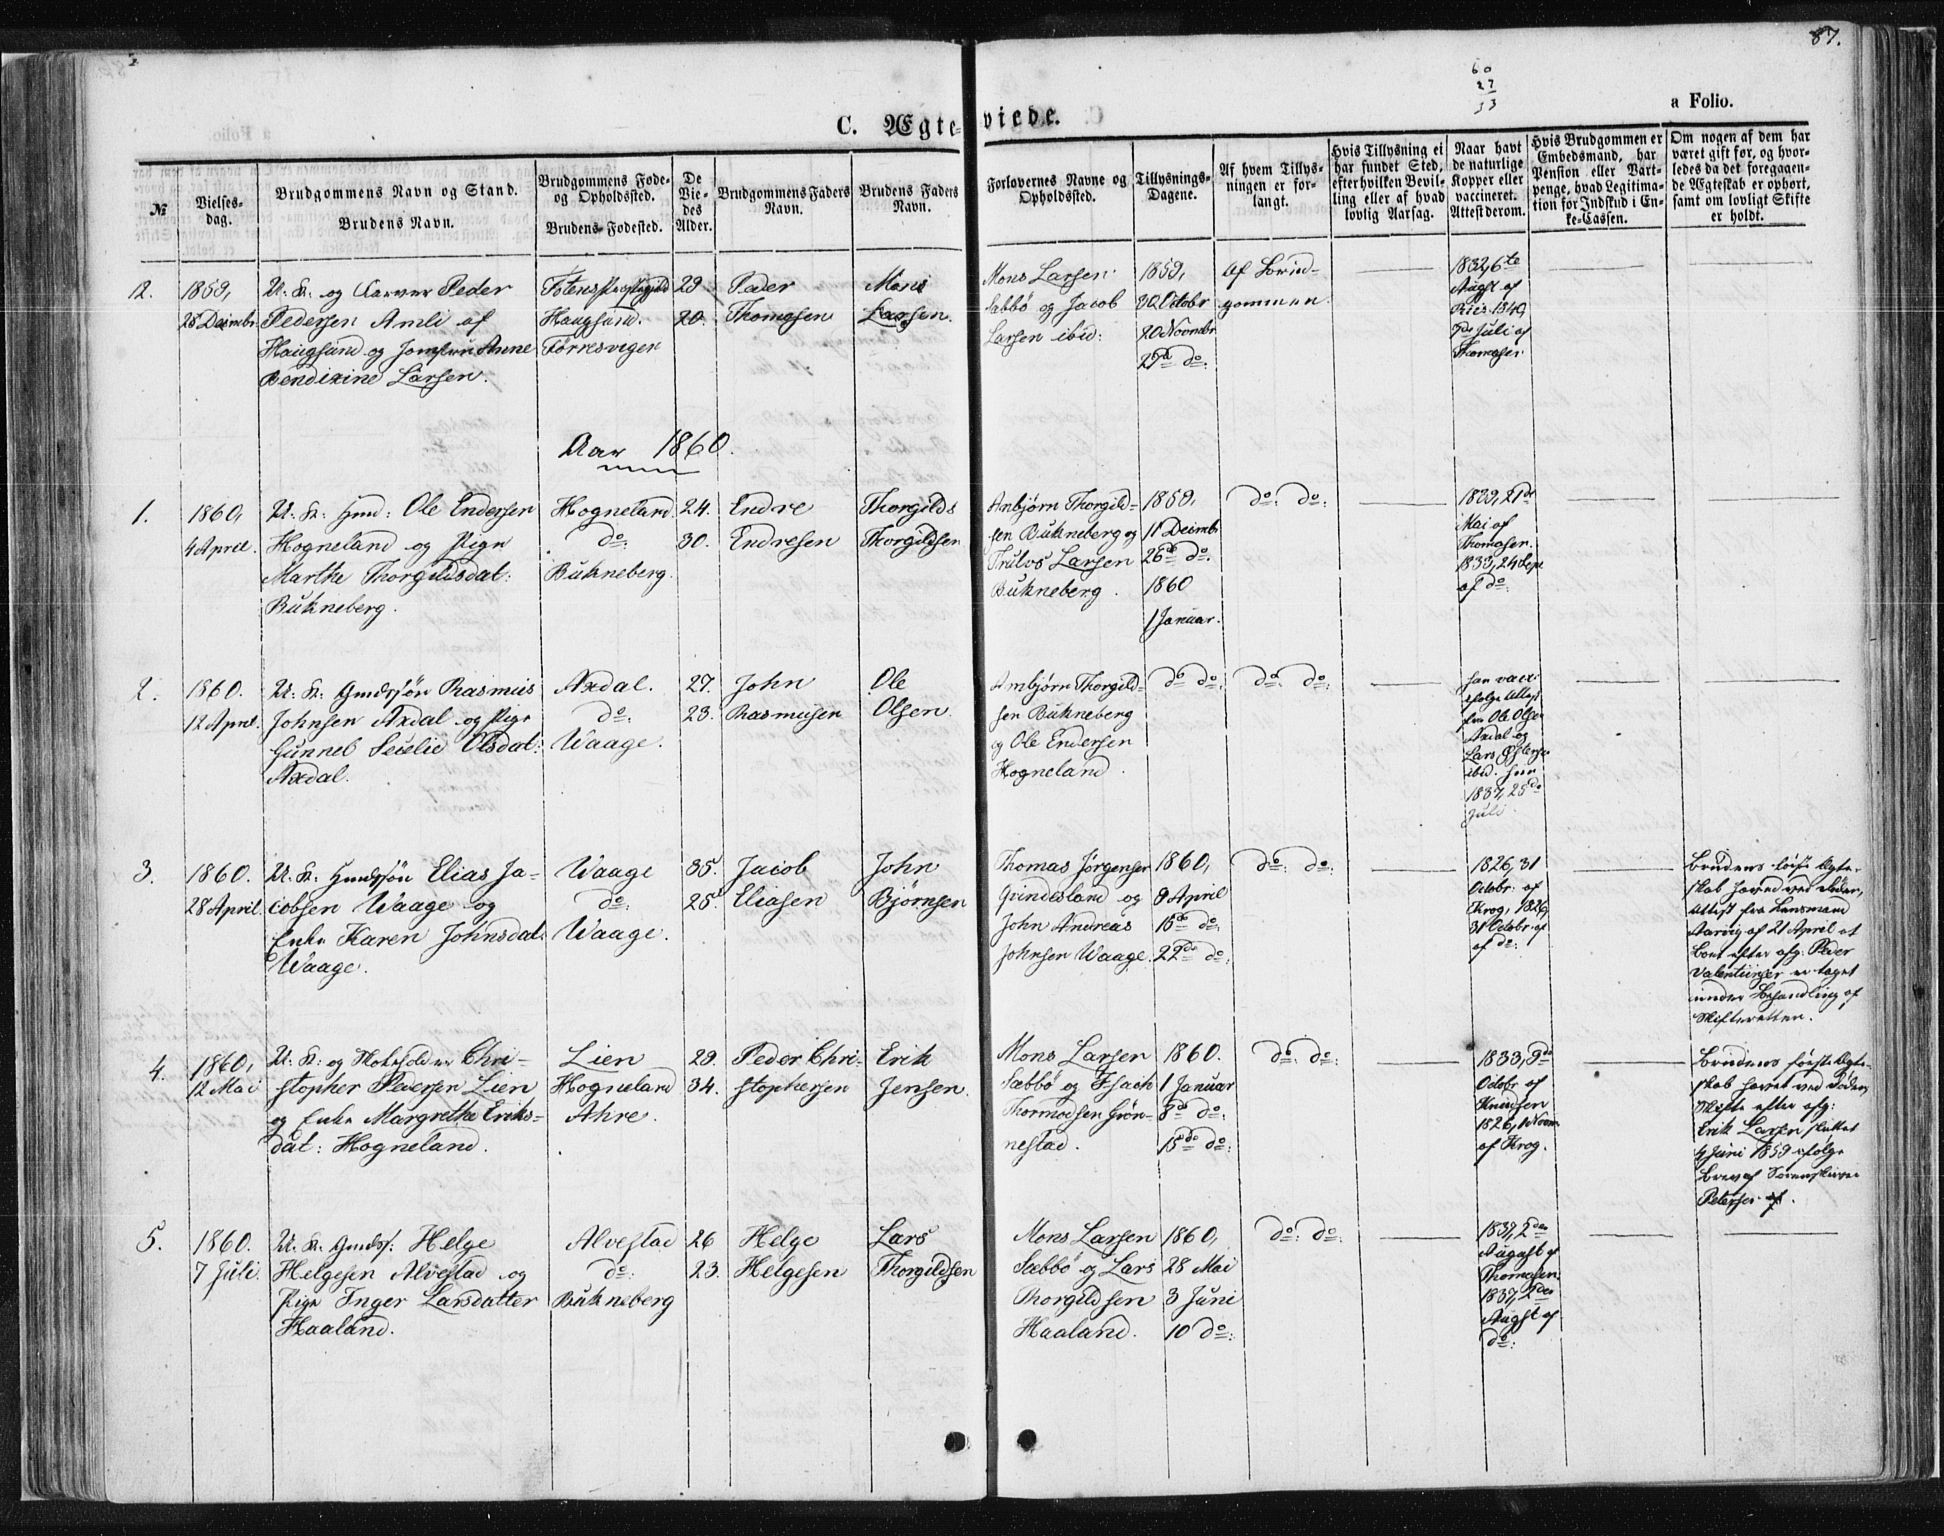 87.
60
27
33
a Folio.
C. Ægteviede.
№
Vielsesdag.
Brudgommens Navn og Stand.
Brudens Navn.
Brudgommens Føde- og Opholdssted.
Brudens Fødested.
De Viedes Alder.
Brudgommens Faders Navn.
Brudens Faders Navn.
Forlovernes Navne og Opholdssted.
Tillysnings-Dagene.
Af hvem Tillysningen er forlangt.
Hvis Tillysning ei har fundet Sted, efter hvilken Bevilling eller af hvad lovlig Aarsag.
Naar havt de naturlige Kopper eller vaccineret. Attest derom.
Hvis Brudgommen er Embedsmand, har Pension eller Vartpenge, hvad Legitimation for Indskud i Enke-Cassen.
Om nogen af dem har været gift før, og hvorledes da det foregaaende Ægteskab er ophørt, samt om lovligt Skifte er holdt.
12.
1859,
28 Decmbr
U. K. og Peder
Pedersen Amli af
Haugsund og Anne
Bendixine Larsen.
Haugsund.
Førresvigen
29
20.
Peder
Thomasen
Mons
Larsen.
Mons Larsen
Sæbbø og Jacob
Larsen ibid:
1859,
30 Octobr
20 Novmbr
27de do.
Af Brud-
gommen.
1832, 6te
Augst af
Riis 1840,
7de Juli af
Thomasen
Aar 1860.
1.
1860,
4 April.
U. K. Gmd: Ole Endersen
Hogneland og Pige
Marthe Thorgildsdat:
Bukneberg.
Hogneland.
do:
Bukneberg.
24.
30.
Endre
Endresen
Thorgilds
Thorgildsen
Anbjørn Thorgild-
sen Bukneberg og
Trulvs Larsen
Bukneberg.
1859,
11 Decmbr
26de do.
1860
1 Januar.
do: do:
1839, 21de
Mai af
Thomasen.
1833, 24 Sept
af do:
2.
1860.
12 April.
U. K. Gmdssøn Rasmus
Johnsen Axdal og Pige
Gunneb Secelie Olsdat:
Axdal.
Axdal.
do:
Waage.
27.
23.
John
Rasmusen
Ole
Olsen
Ambjørn Thorgild-
sen Bukneberg
og Ole Endersen
Hogneland.
do do:
do. do:
han vacc:
ifølge Attest
fra Ole Olsen
Axdal og
Lars
ibid. hun
1837, 25de
Juli.
3.
1860.
28 April.
U. K. Gmdssøn Elias Ja-
cobsen Waage og
Enke Karen Johnsdat:
Waage.
Waage
do:
Waage.
35.
25.
Jacob
Eliasen
John
Bjørnsen
Thomas Jörgensen
Grindesland og
John Andreas
Johnsen Waage.
1860,
9 April
15de do:
22de do:
do: do:
1826, 31
Octobr: af
Krog, 1826,
31 Octobr af
af do:
Brudens første Ægte-
skab hævet ved Døden,
Attest fra Lensmand
Aarvig af 21 April at
Boet efter afg: Peder
Valentinsen er taget
under Behandling af
Skifteretten.
4.
1860,
12 Mai
U. K. og Chri-
stopher Pedersen Lien
og Enke Margrethe Eriks-
dat: Hogneland.
Lien
Hogneland
Ahre.
29.
34.
Peder Chri-
stophersen
Erik
Jensen.
Mons Larsen
Sæbbø og Isach
Thormodsen Grøn-
nestad.
1860.
1 Januar
8de do:
15de do:
do: do:
1833, 9de
Octobr af
Knudsen
1826, 1 Novm
af Krog.
Brudens første Ægte-
skab hævet ved Døden,
Skifte efter afg:
Erik Larsen sluttet
4 Juni 1859 ifølge
Brev af Sorenskriver
Petersen af.
5.
1860.
7 Juli.
U. K. Gmdss: Helge
Helgesen Alvestad og
Pige Inger Larsdatter
Haaland.
Alvestad
do:
Bukneberg
26
23.
Helge
Helgesen
Lars
Thorgildsen
Mons Larsen
Sæbbø og Lars
Thorgildsen
Haaland.
1860,
28 Mai
3 Juni
10 do:
do: do:
1837, 2den
Augast af
Thomasen.
1837, 2den
Augst af
do: